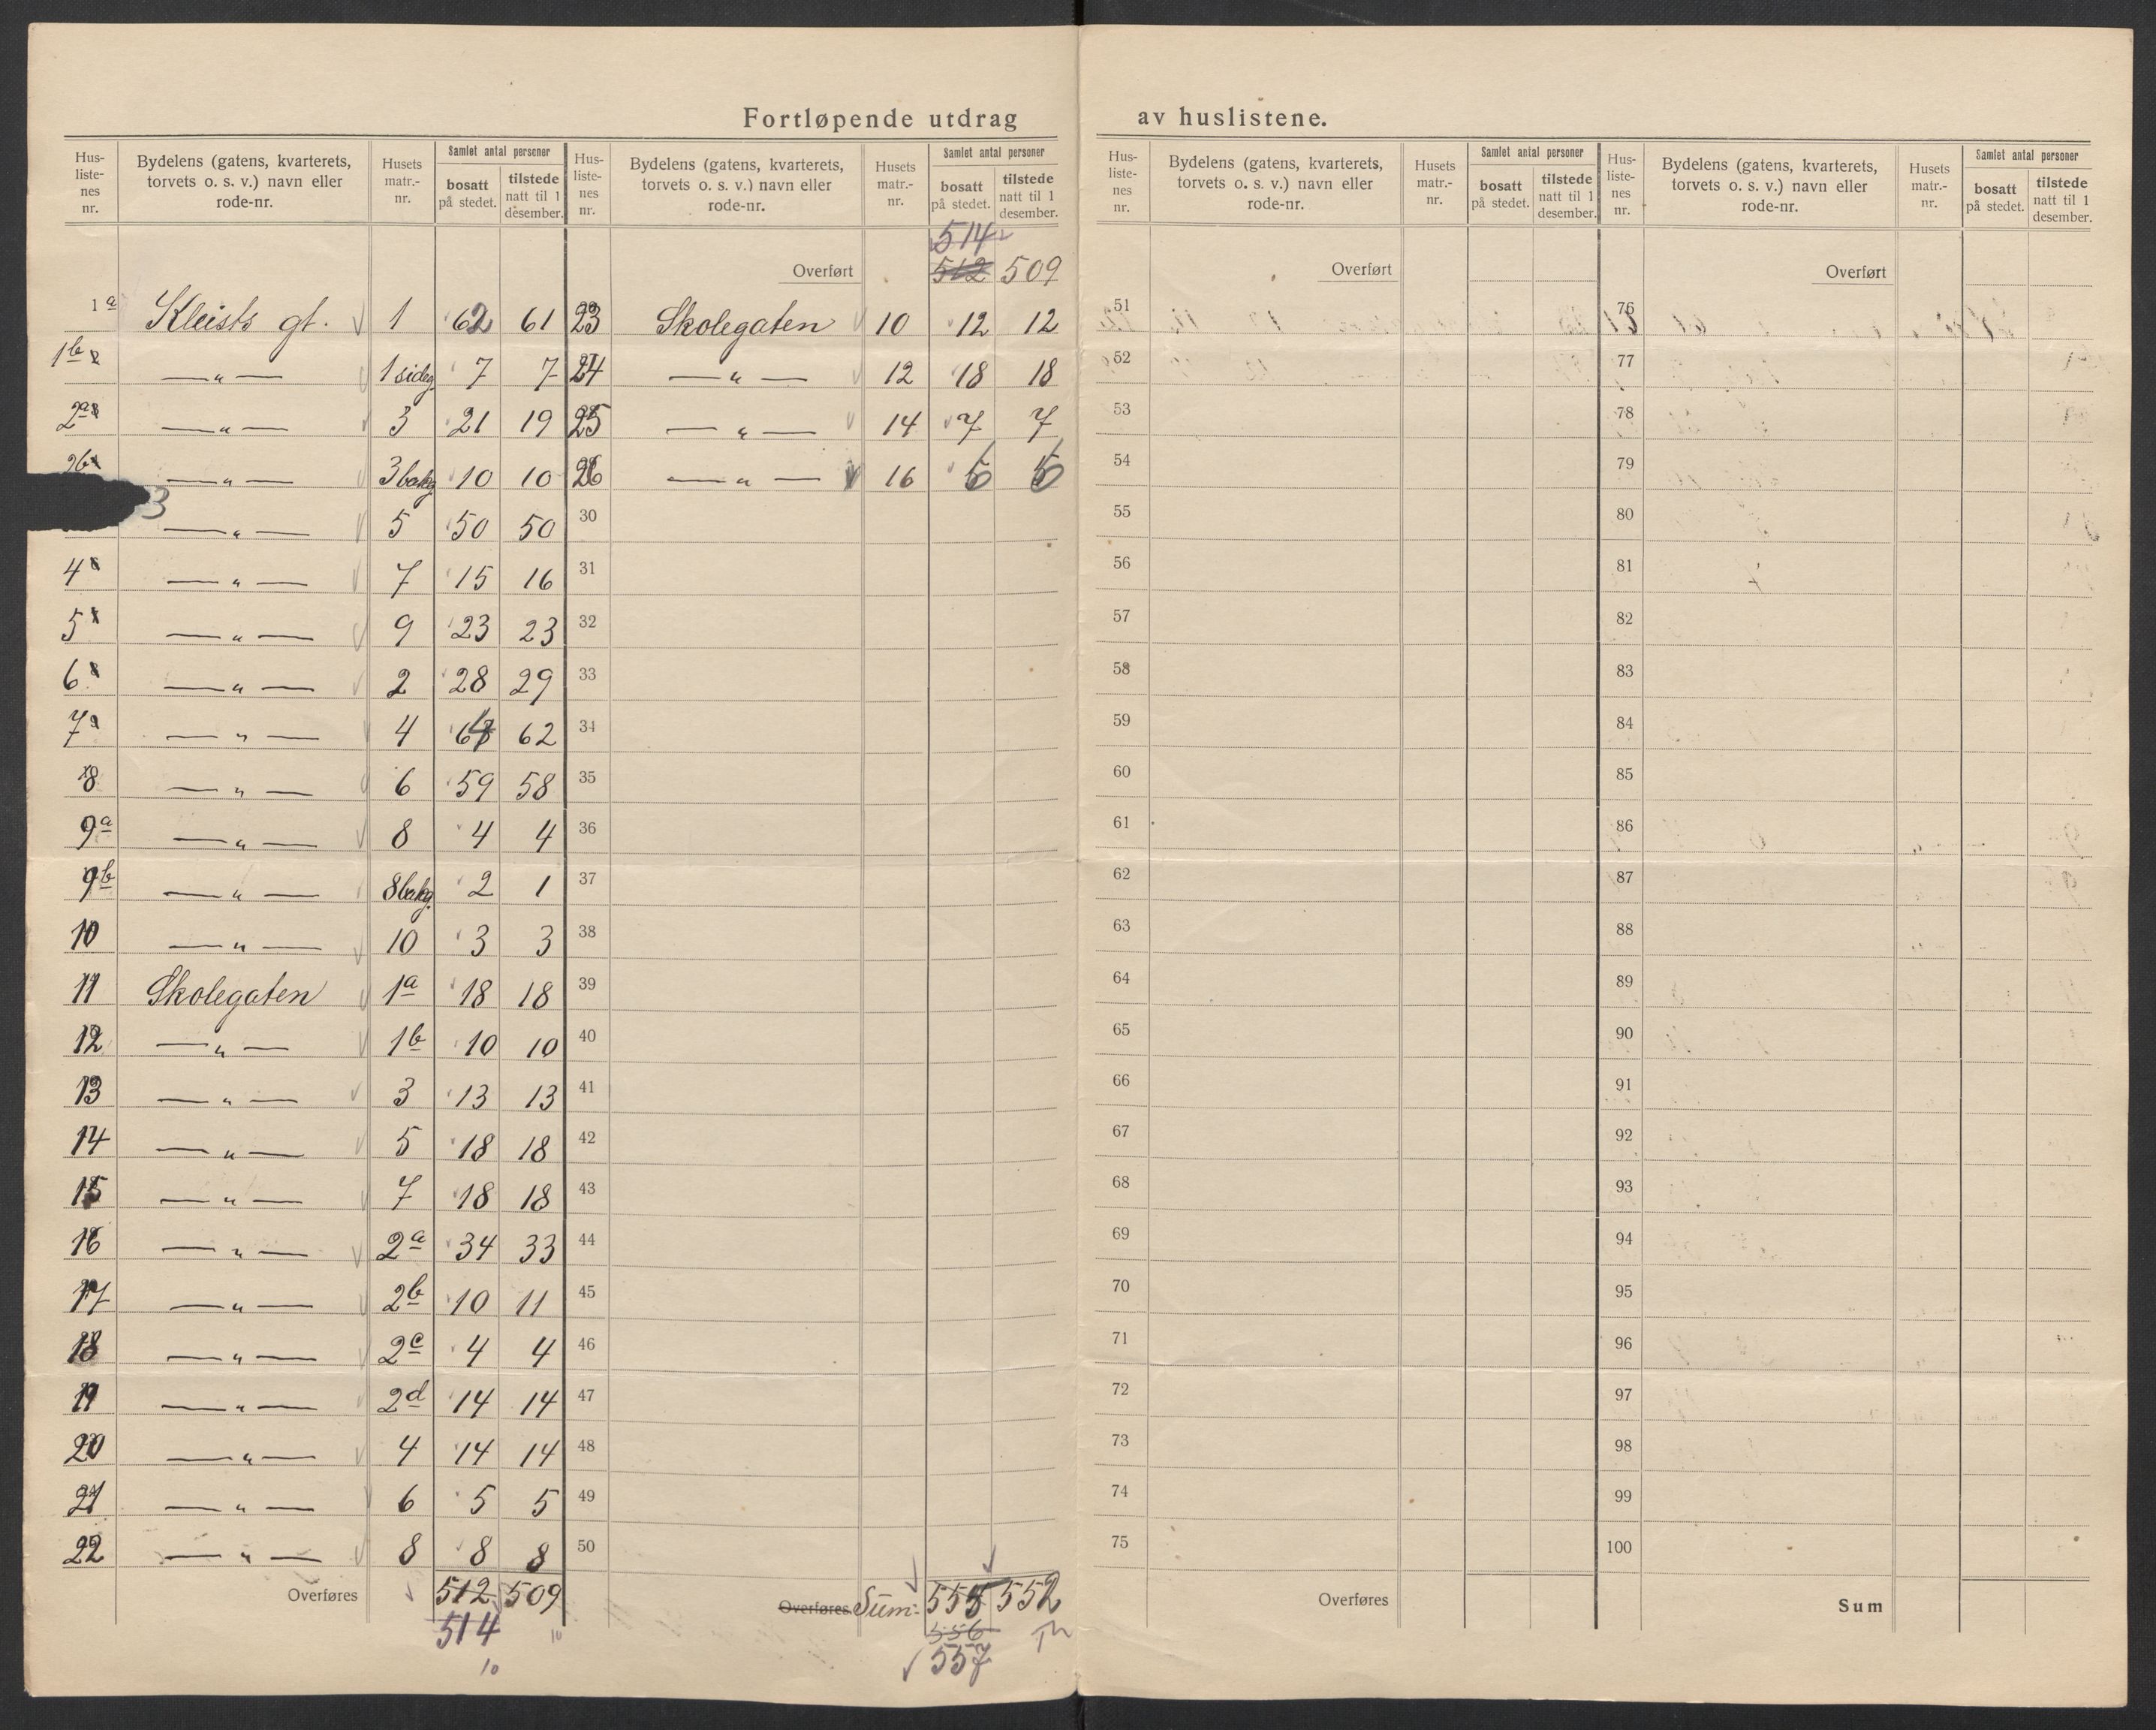 Fortløpende utdrag av huslistene.
Hus-listenes nr. Bydelens (gatens, kvarterets, torvets o. s. v.) navn eller rode-nr. Husets matr.-nr. Samlet antal personer bosatt på stedet. tilstede natt til 1 desember.
1a Kleists gt. 1 62 61
1b —„— 1 sideg. 7 7
2a —„— 3 21 19
2b —„— 3 bakg. 10 10
3 —„— 5 50 50
4 —„— 7 15 16
5 —„— 9 23 23
6 —„— 2 28 29
7 —„— 4 64 62
8 —„— 6 59 58
9a —„— 8 4 4
9b —„— 8 bakg. 2 1
10 —„— 10 3 3
11 Skolegaten 1a 18 18
12 —„— 1b 10 10
13 —„— 3 13 13
14 —„— 5 18 18
15 —„— 7 18 18
16 —„— 2a 34 33
17 —„— 2b 10 11
18 —„— 2c 4 4
19 —„— 2d 14 14
20 —„— 4 14 14
21 —„— 6 5 5
22 —„— 8 8 8
Overføres 512 509
514
10 10
Hus-listenes nr. Bydelens (gatens, kvarterets, torvets o. s. v.) navn eller rode-nr. Husets matr.-nr. Samlet antal personer bosatt på stedet. tilstede natt til 1 desember.
514
Overført 512 509
23 Skolegaten 10 12 12
24 —„— 12 18 18
25 —„— 14 7 7
26 —„— 16 6 6
30
31
32
33
34
35
36
37
38
39
40
41
42
43
44
45
46
47
48
49
50
Overføres Sum: 555 552
556
557
Hus-listenes nr. Bydelens (gatens, kvarterets, torvets o. s. v.) navn eller rode-nr. Husets matr.-nr. Samlet antal personer bosatt på stedet. tilstede natt til 1 desember.
Overført
51
52
53
54
55
56
57
58
59
60
61
62
63
64
65
66
67
68
69
70
71
72
73
74
75
Overføres
Hus-listenes nr. Bydelens (gatens, kvarterets, torvets o. s. v.) navn eller rode-nr. Husets matr.-nr. Samlet antal personer bosatt på stedet. tilstede natt til 1 desember.
Overført
76
77
78
79
80
81
82
83
84
85
86
87
88
89
90
91
92
93
94
95
96
97
98
99
100
Sum